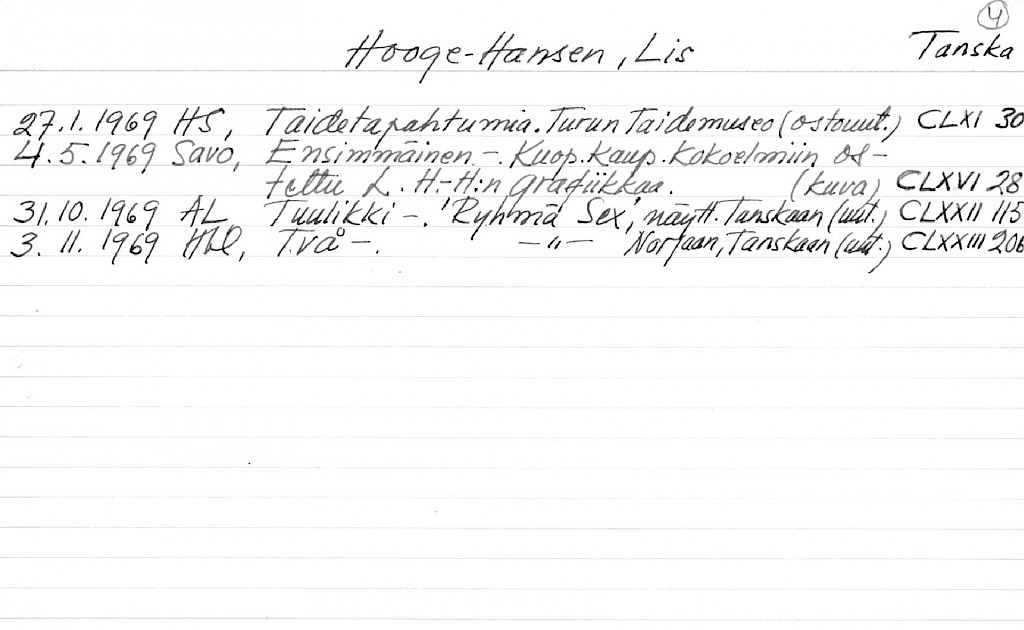 4
Hooge-Hansen, Lis Tanska
27.1.1969 HS, Taidetapahtumia. Turun Taidemuseo (ostouut.) CLXI 30
4.5.1969 Savo, Ensimmäinen -. Kuop. Kaup. Kokoelmiin os-
tettu L. H.-H:n grafiikkaa. (kuva) CLXVI 28
31.10.1969 AL Tuulikki -. 'Ryhmä Sex', näytt. Tanskaan (uut.) CLXXII 115
3.11.1969 Hbl, Två -. -"- Norjaan, Tanskaan (uut.) CLXXIII 206